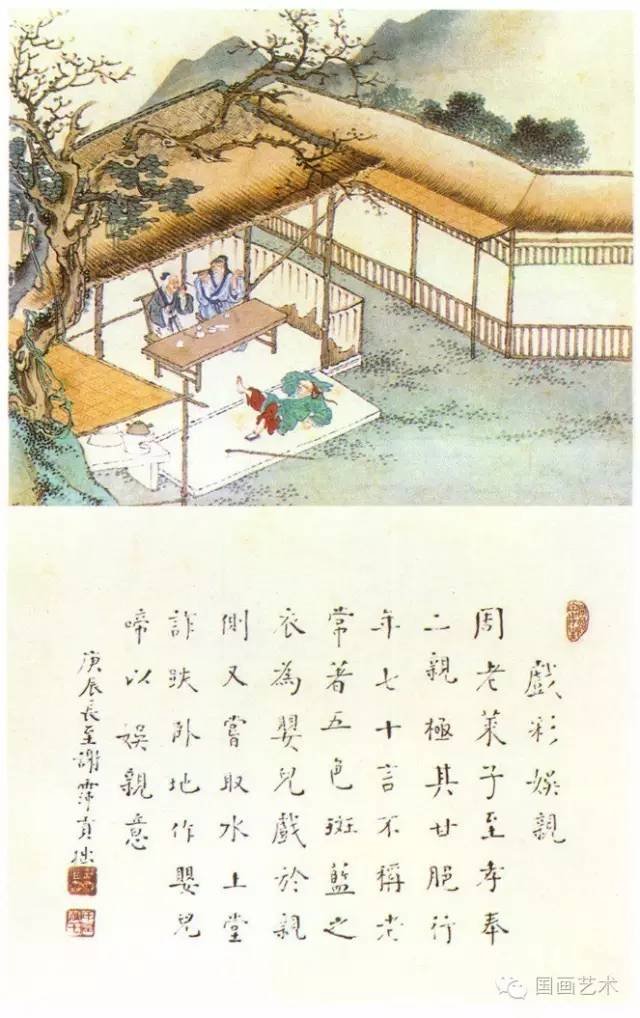 戲彩娛親
周老萊子至孝奉
二親極其甘脆行
年七十言不稱老
常著五色斑藍之
衣為嬰兒戲於親
側又嘗取水上堂
詐跌卧地作嬰兒
啼以娛親意
庚辰長至謝
国画艺术